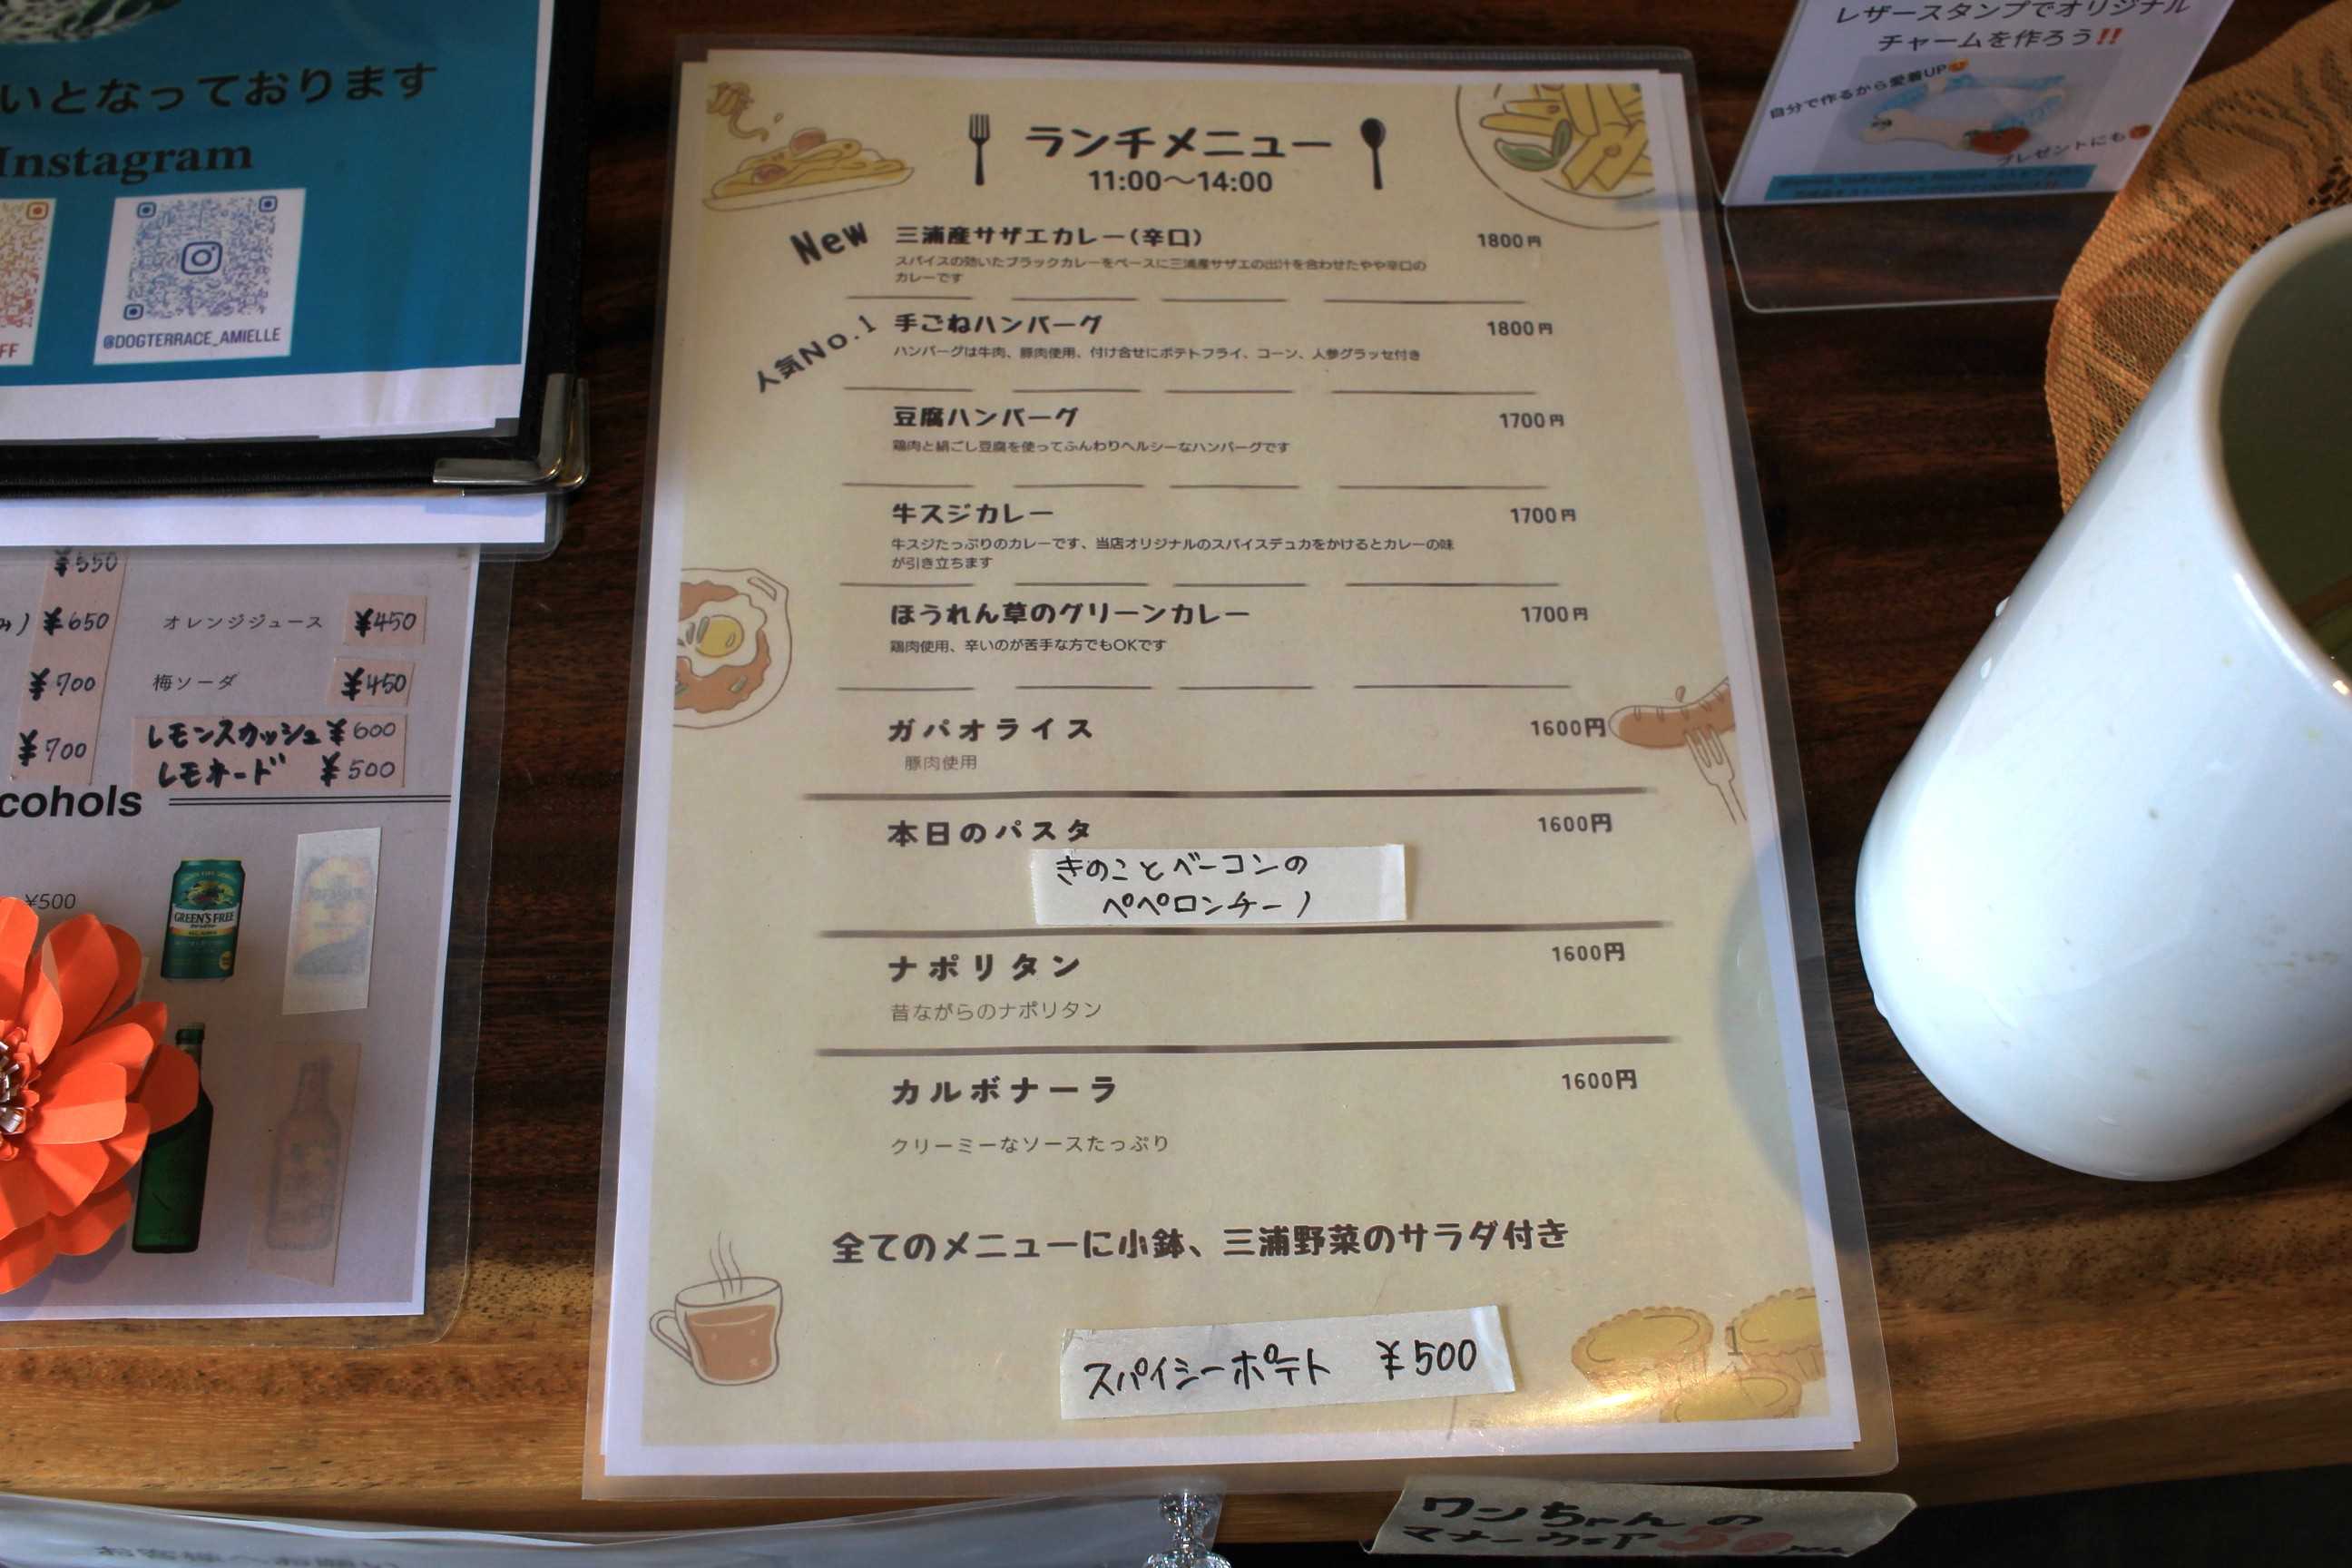 いとなっております
Instagram
@DOGTERRACE_AMIELLE
FF
¥550
み) ¥650
¥700
¥700
オレンジジュース ¥450
梅ソーダ ¥450
レモンスカッシュ ¥600
レモネード ¥500
cohols
¥500
GREEN'S FREE
ランチメニュー
11:00〜14:00
New
三浦産サザエカレー(辛口) 1800円
スパイスの効いたブラックカレーをベースに三浦産サザエの出汁を合わせたやや辛口の
カレーです
人気No.1
手ごねハンバーグ 1800円
ハンバーグは牛肉、豚肉使用、付け合せにポテトフライ、コーン、人参グラッセ付き
豆腐ハンバーグ 1700円
鶏肉と絹ごし豆腐を使ってふんわりヘルシーなハンバーグです
牛スジカレー 1700円
牛スジたっぷりのカレーです、当店オリジナルのスパイスデュカをかけるとカレーの味
が引き立ちます
ほうれん草のグリーンカレー 1700円
鶏肉使用、辛いのが苦手な方でもOKです
ガパオライス 1600円
豚肉使用
本日のパスタ 1600円
きのことベーコンの
ペペロンチーノ
ナポリタン 1600円
昔ながらのナポリタン
カルボナーラ 1600円
クリーミーなソースたっぷり
全てのメニューに小鉢、三浦野菜のサラダ付き
スパイシーポテト ¥500
1
レザースタンプでオリジナル
チャームを作ろう!!
自分で作るから愛着UP
プレゼントにも
ワンちゃんの
マナーウェア 50